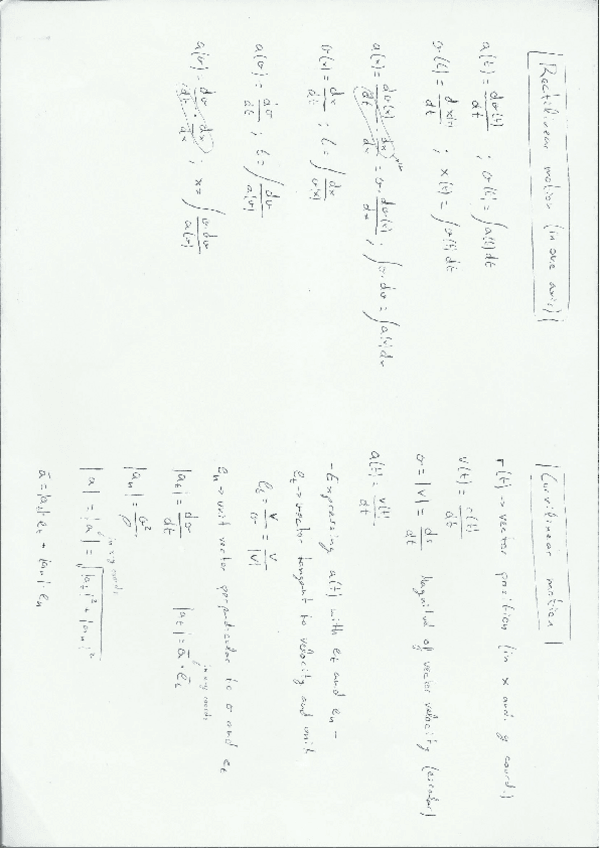 Rectilinear motion (in one axis)
a(t) = dv(t)/dt ; v(t) = ∫a(t)dt
v(t) = dx(t)/dt ; x(t) = ∫v(t)dt
a(x) = dv(x)/dt · dx/dx = v · dv(x)/dx ; ∫v·dv = ∫a(x)dx
v(x) = dx/dt ; t = ∫dx/v(x)
a(v) = dv/dt ; t = ∫dv/a(v)
a(v) = dv/dt · dx/dx ; x = ∫v·dv/a(v)
Curvilinear motion
r(t) → vector position (in x and y coord.)
v(t) = r(t)/dt
v = |v| = ds/dt Magnitud of vector velocity (escalar)
a(t) = v(t)/dt
- Expressing a(t) with et and en -
et → vector tangent to velocity and unit.
et = v/v = v/|v|
en → unit vector perpendicular to v and et
|at| = dv/dt |at| = a · et
in x y coords
|an| = v²/ρ
in x y coords
|a| = |a| = √|at|² + |an|²
a = |at|·et + |an|·en